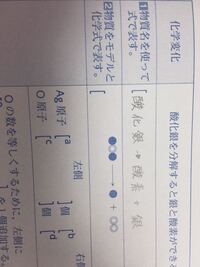 化学変化
酸化銀を分解すると銀と酸素ができる
1物質名を使って
式で表す。
[酸化銀 → 酸素 + 銀
2物質をモデルと
化学式で表す。
[
→ +
左側
右側
Ag原子 [a ]個 [b
O原子 [c ]個 [d
Oの数を等しくするために、左側に
]を1個追加する。